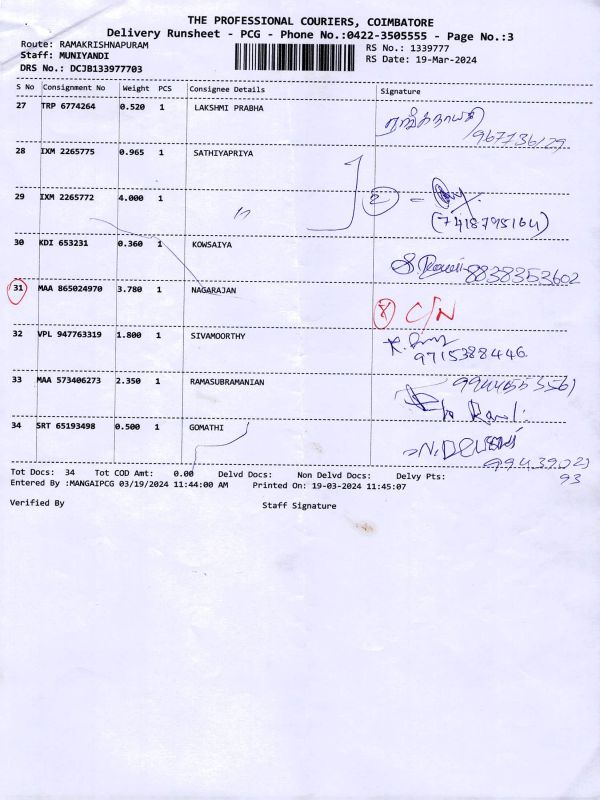 THE PROFESSIONAL COURIERS, COIMBATORE
Delivery Runsheet - PCG - Phone No.:0422-3505555 - Page No.:3
Route: RAMAKRISHNAPURAM RS No.: 1339777
Staff: MUNIYANDI RS Date: 19-Mar-2024
DRS No.: DCJB133977703
S No Consignment No Weight PCS Consignee Details Signature
27 TRP 6774264 0.520 1 LAKSHMI PRABHA
967136129
28 IXM 2265775 0.965 1 SATHIYAPRIYA
29 IXM 2265772 4.000 1 " 2 -
(7418795164)
30 KDI 653231 0.360 1 KOWSAIYA
8838353602
31 MAA 865024970 3.780 1 NAGARAJAN
C/N
32 VPL 947763319 1.800 1 SIVAMOORTHY
9715388446
33 MAA 573406273 2.350 1 RAMASUBRAMANIAN
34 SRT 65193498 0.500 1 GOMATHI
93
Tot Docs: 34 Tot COD Amt: 0.00 Delvd Docs: Non Delvd Docs: Delvy Pts:
Entered By :MANGAIPCG 03/19/2024 11:44:00 AM Printed On: 19-03-2024 11:45:07
Verified By Staff Signature